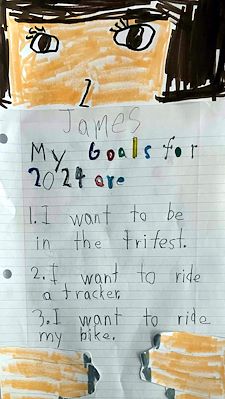 James
My Goals for
2024 are
1. I want to be
in the trifest.
2. I want to ride
a tracker.
3. I want to ride
my bike.